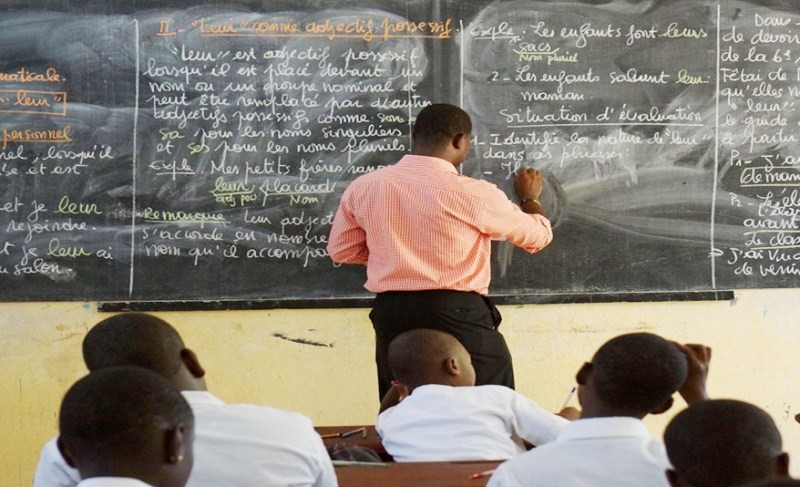 maticale.
"leur"
personnel
nel, lorsqu'il
et est
et je leur
rejoindre.
t je leur ai
au salon.
II - "leur" comme adjectif possessif
"leur" est adjectif possessif
lorsqu'il est placé devant un
nom ou un groupe nominal et
peut être remplacé par d'autres
adjectifs possessifs comme son
sa pour les noms singuliers
et ses pour les noms pluriels.
Exple Mes petits frères
leur placard
adj pos Nom
Remarque leur adject
s'accorde en nombre
nom qu'il accompa
Exple - Les enfants font leurs
sacs
Nom pluriel
2 - Les enfants saluent leur
maman.
Situation d'évaluation
1 - Identifie la nature de "leur"
dans les phrases:
Dans
de devoir
de la 6e
l'état de
qu'elles
"leur"
le guide
à partir
P1 - J'ai
deman
P2 - l'élè
avant
le clas
J'ai vu
de venir